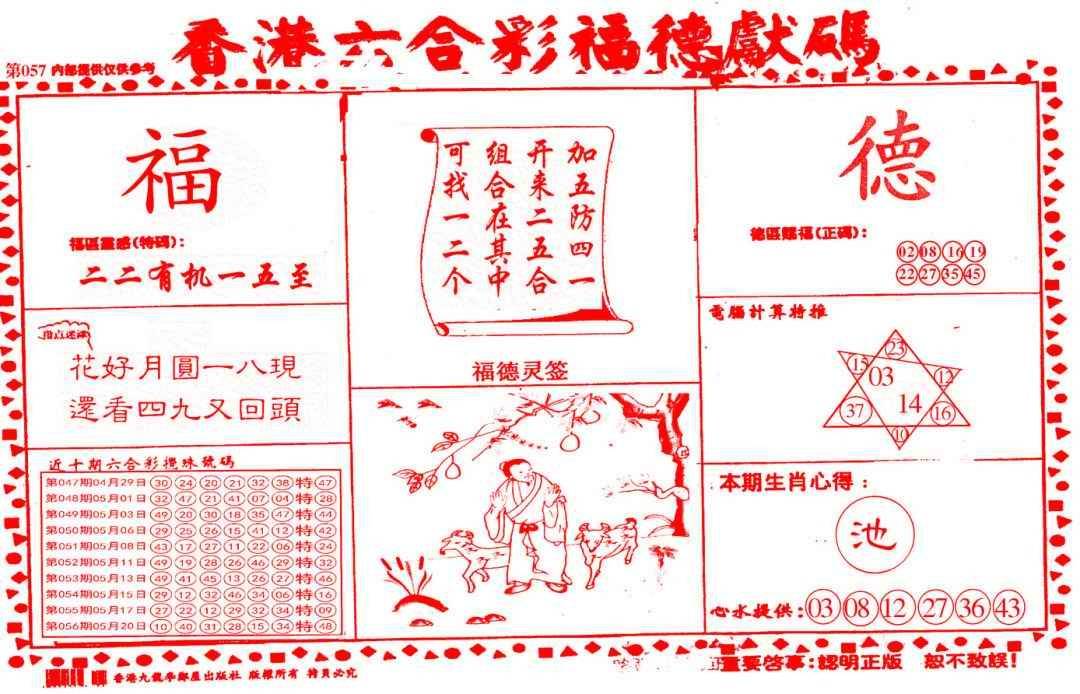 香港六合彩福德獻碼
第057 內部提供仅供参考
福
福區靈感(特碼):
二二有机一五至
花好月圓一八現
還看四九又回頭
近十期六合彩攪珠號碼
第047期04月29日 30 24 20 21 32 38 特 47
第048期05月01日 32 47 21 41 07 04 特 28
第049期05月03日 49 20 30 18 35 47 特 44
第050期05月06日 29 25 26 15 41 12 特 42
第051期05月08日 43 17 27 11 22 06 特 24
第052期05月11日 49 19 28 26 46 29 特 32
第053期05月13日 49 41 45 13 26 27 特 46
第054期05月15日 29 12 32 46 34 06 特 16
第055期05月17日 27 22 12 29 32 34 特 09
第056期05月20日 10 40 31 28 15 34 特 48
加五防四一
开来二五合
组合在其中
可找一二个
福德灵签
德
德區賜福(正碼):
02 08 16 19
22 27 35 45
電腦計算特推
23
15 03 12
37 14 16
10
本期生肖心得:
池
心水提供: 03 08 12 27 36 43
香港九龍李鄭屋出版社 版權所有 特員必究
重要啓事:認明正版 恕不致誤!